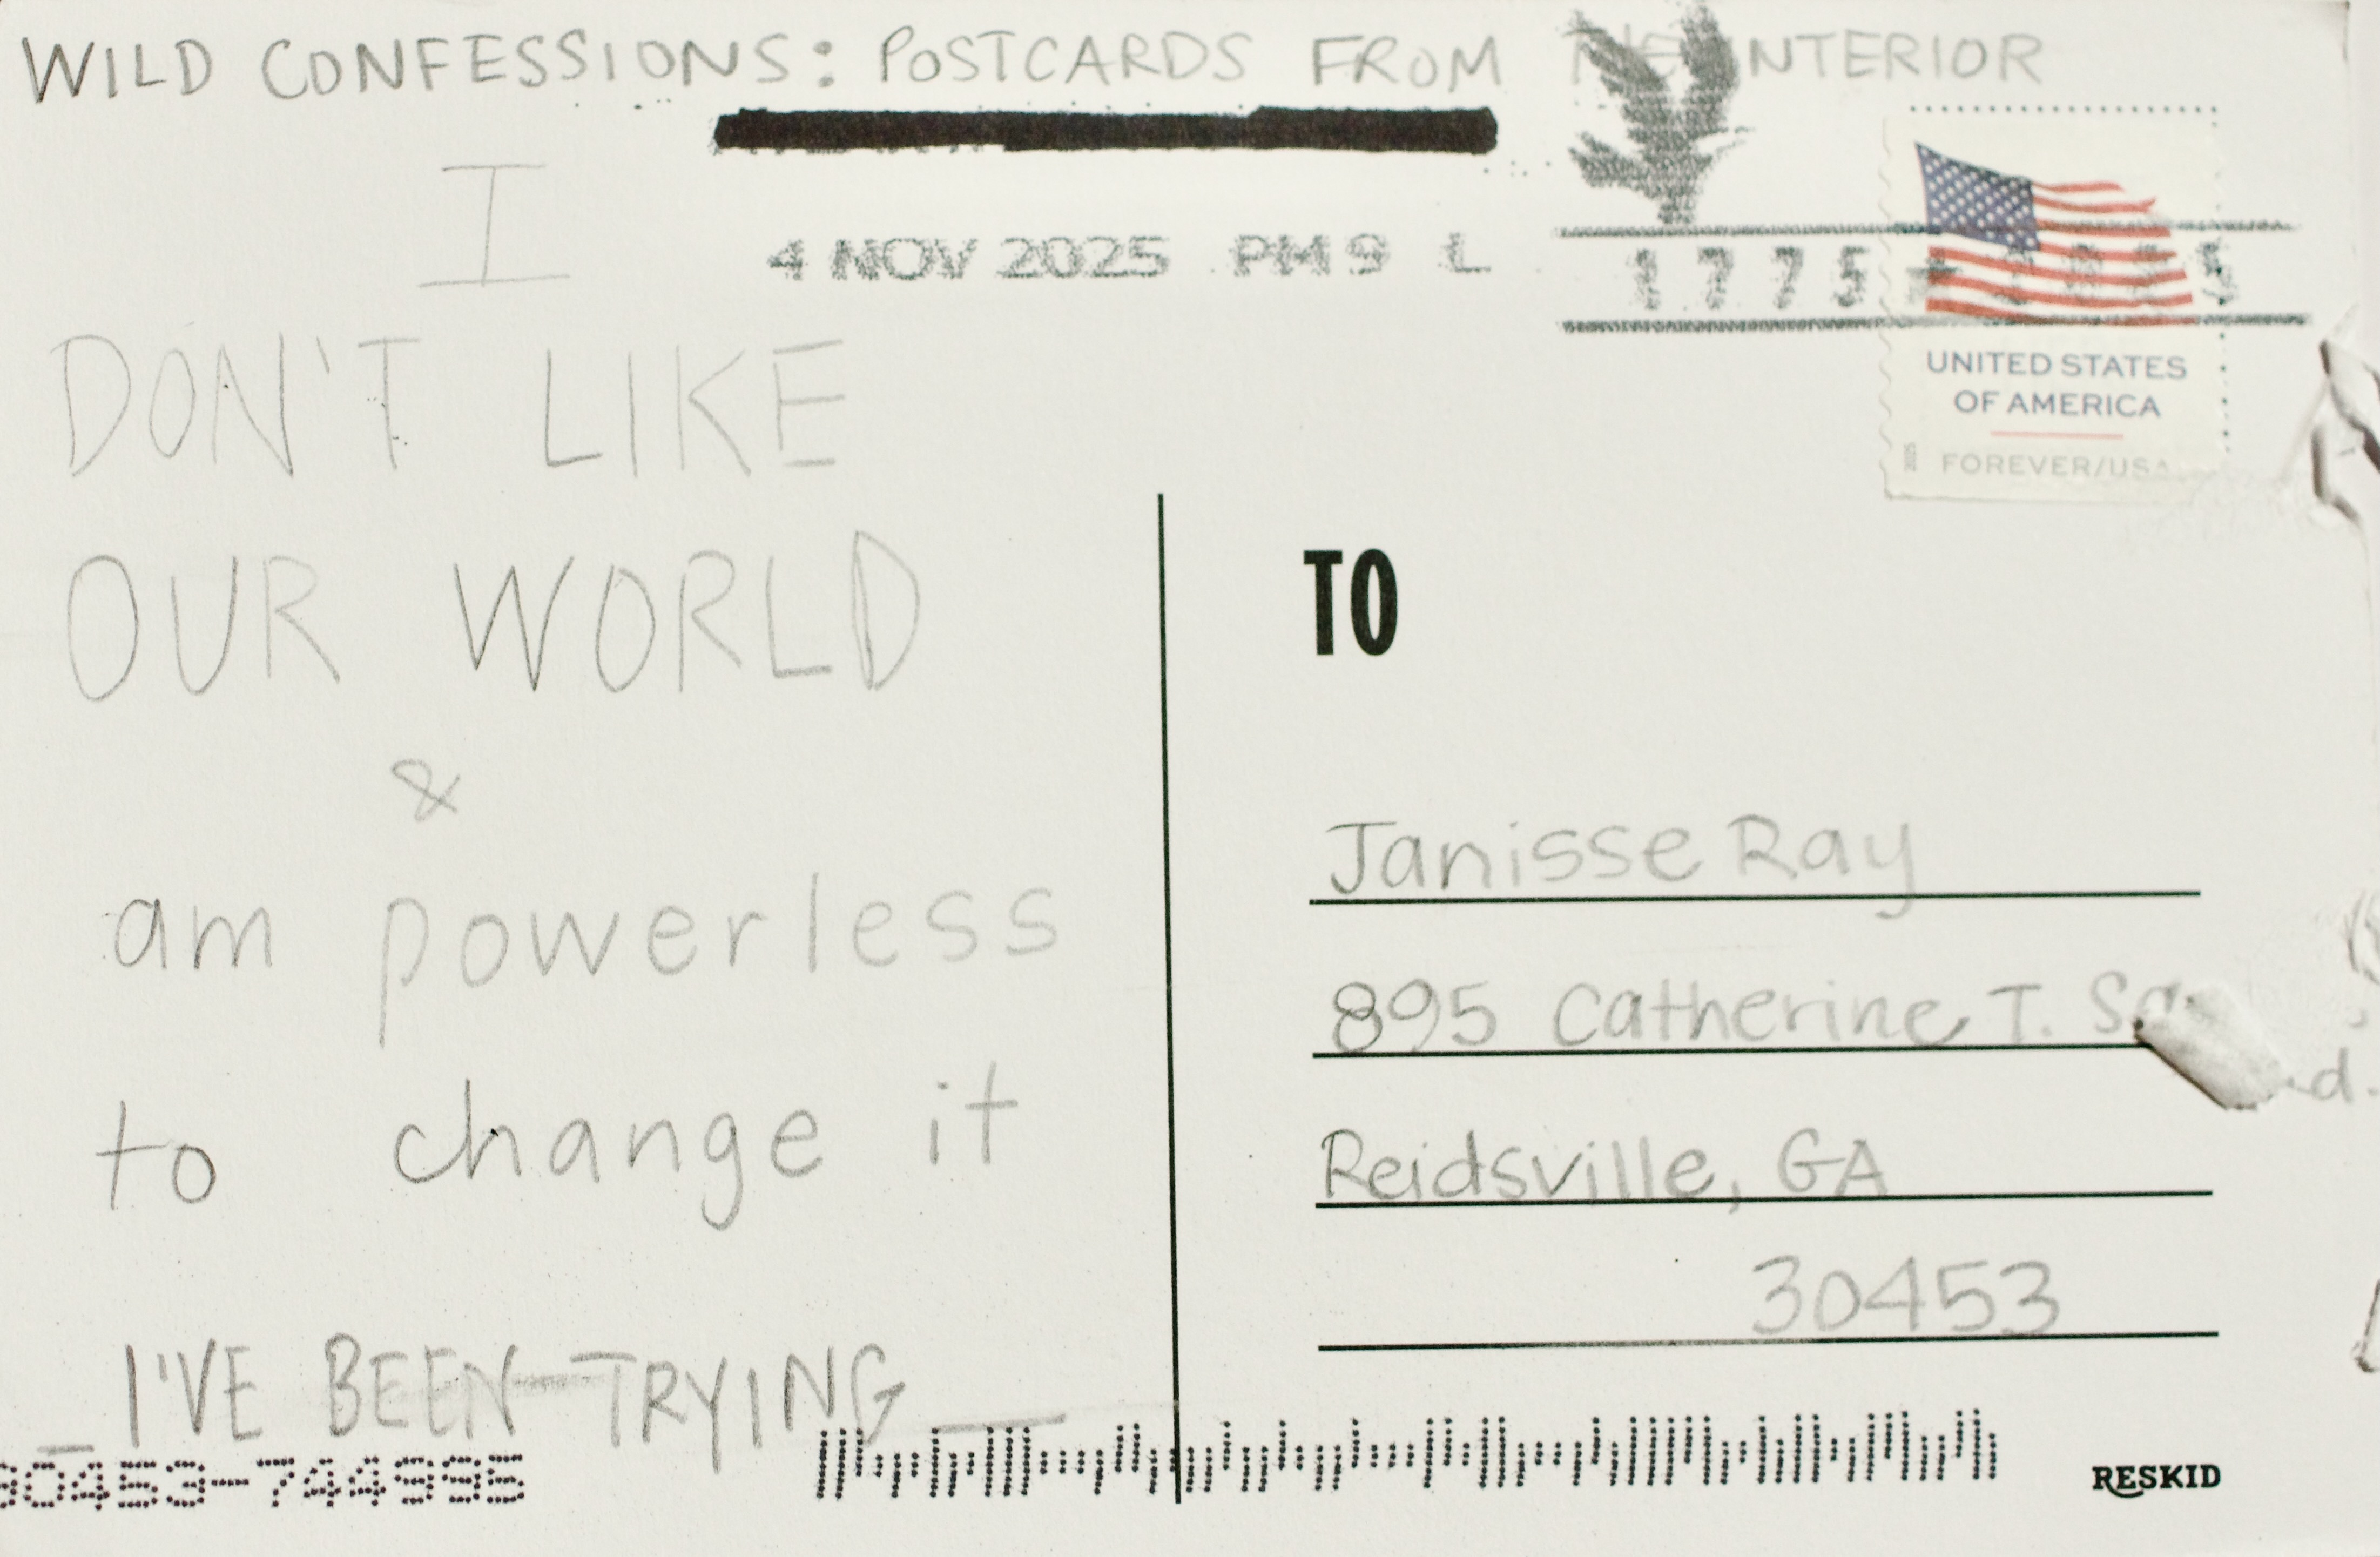 WILD CONFESSIONS: POSTCARDS FROM THE INTERIOR
4 NOV 2025 PM 9 L
1775
UNITED STATES
OF AMERICA
2025
FOREVER/USA
I
DON'T LIKE
OUR WORLD
&
am powerless
to change it
_I'VE BEEN TRYING_
TO
Janisse Ray
895 Catherine T.
Reidsville, GA
30453
30453-744995
RESKID